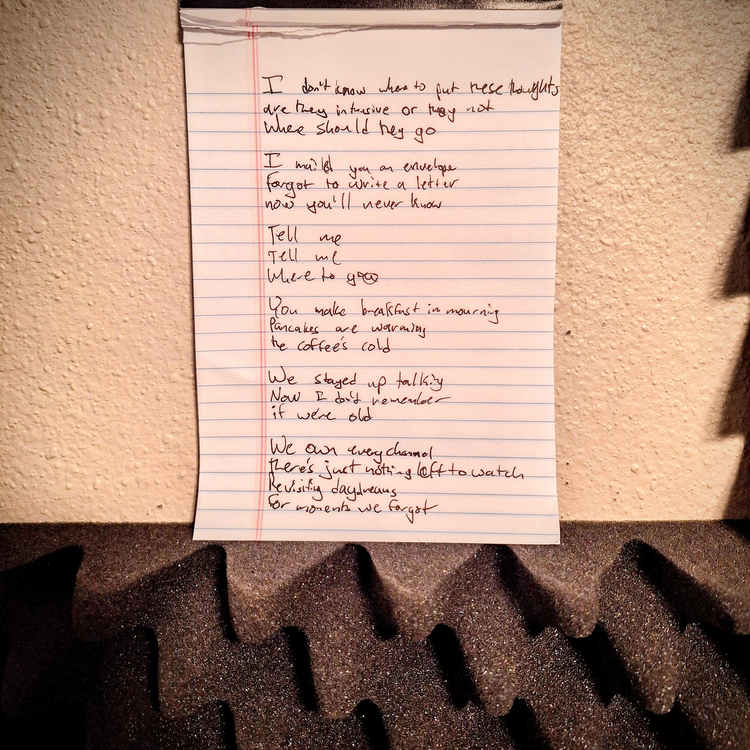 I don't know where to put these thoughts
are they intrusive or they not
Where should they go
I mailed you an envelope
forgot to write a letter
now you'll never know
Tell me
Tell me
Where to go
You make breakfast in mourning
Pancakes are warming
the coffee's cold
We stayed up talking
Now I don't remember
if we're old
We own every channel
there's just nothing left to watch
Revisiting daydreams
For moments we forgot